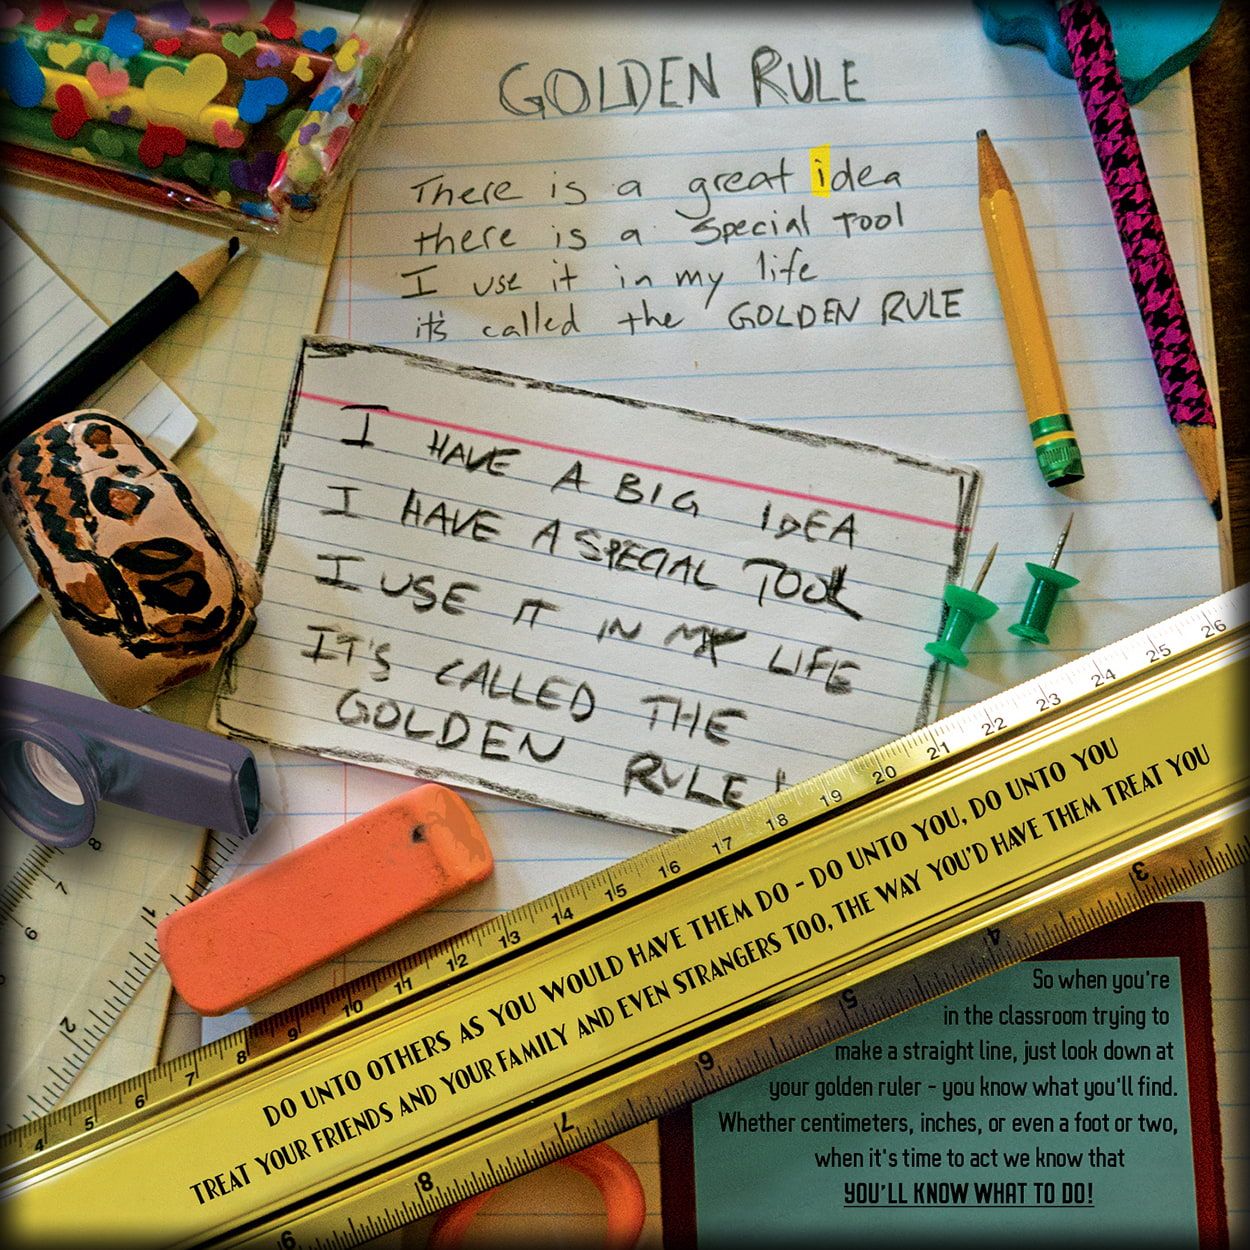 GOLDEN RULE
There is a great idea
there is a special tool
I use it in my life
it's called the GOLDEN RULE
I HAVE A BIG IDEA
I HAVE A SPECIAL TOOL
I USE IT IN MY LIFE
IT'S CALLED THE
GOLDEN RULE!
4 5 6 7 8 9 10 11 12 13 14 15 16 17 18 19 20 21 22 23 24 25 26
DO UNTO OTHERS AS YOU WOULD HAVE THEM DO - DO UNTO YOU, DO UNTO YOU
TREAT YOUR FRIENDS AND YOUR FAMILY AND EVEN STRANGERS TOO, THE WAY YOU'D HAVE THEM TREAT YOU
9 8 7 6 5 4 3
8
7
6
1
2
So when you're
in the classroom trying to
make a straight line, just look down at
your golden ruler - you know what you'll find.
Whether centimeters, inches, or even a foot or two,
when it's time to act we know that
YOU'LL KNOW WHAT TO DO!